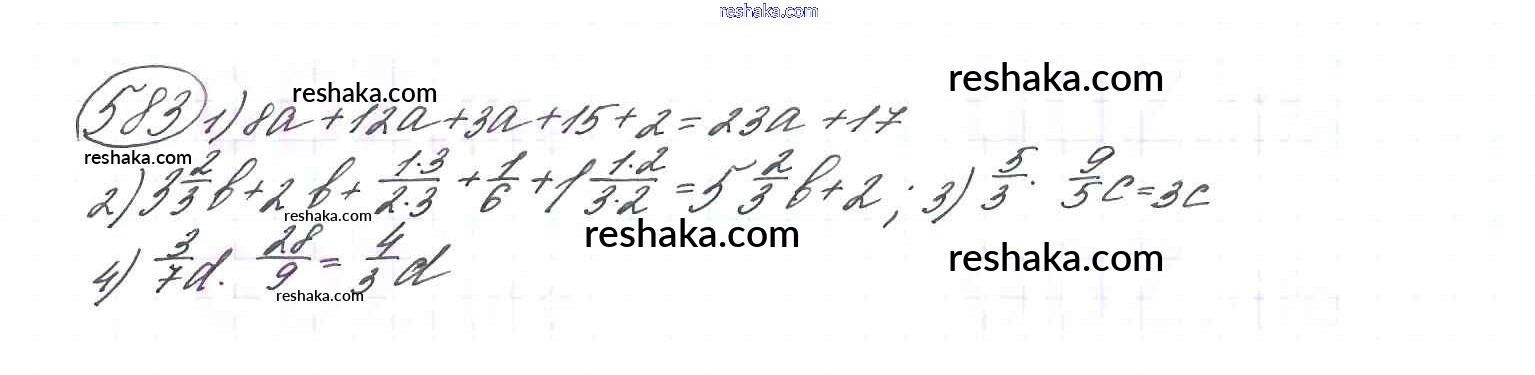 reshaka.com
reshaka.com
reshaka.com
583 1) 8a + 12a + 3a + 15 + 2 = 23a + 17
reshaka.com
2) 3 2/3 b + 2b + 1·3/2·3 + 1/6 + 1 1·2/3·2 = 5 2/3 b + 2; 3) 5/3 · 9/5 c = 3c
reshaka.com
reshaka.com
reshaka.com
4) 3/7 d · 28/9 = 4/3 d
reshaka.com